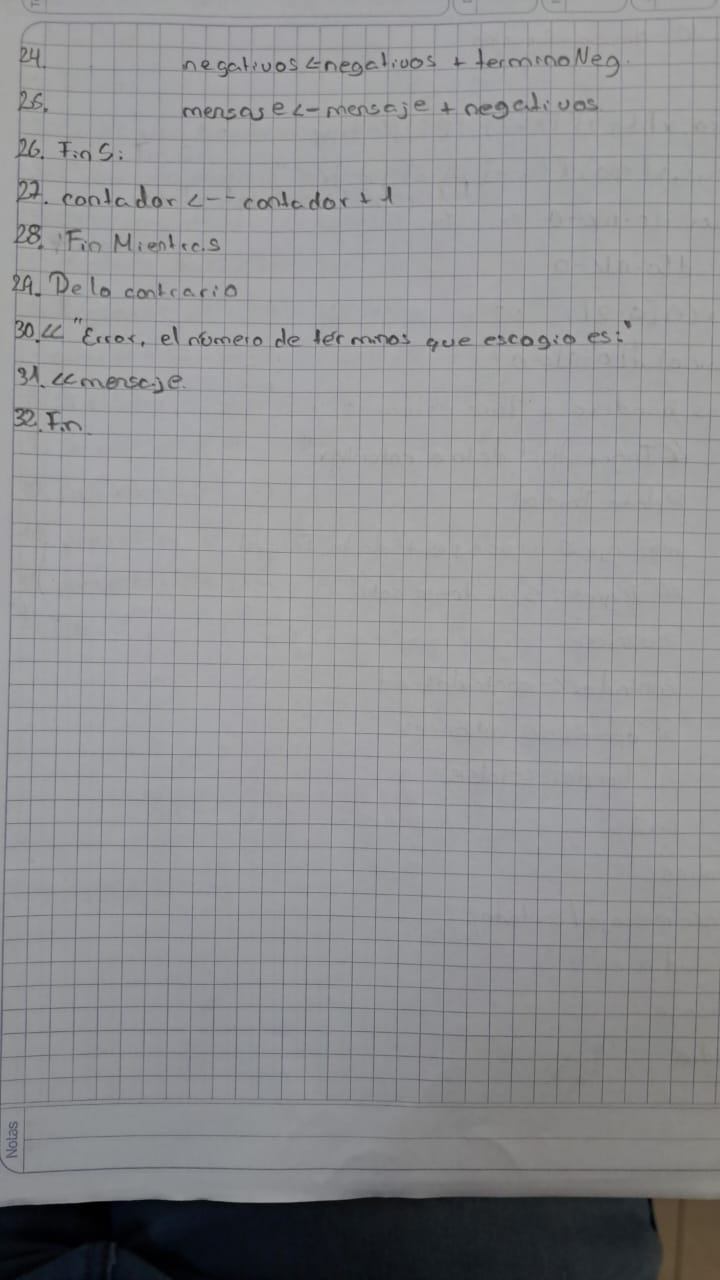 24. negativos <- negativos + terminoNeg.
25. mensaje <- mensaje + negativos
26. Fin Si
27. contador <-- contador + 1
28. Fin Mientras
29. De lo contrario
30. << "Error, el número de términos que escogio es:"
31. << mensaje.
32. Fin
Notas